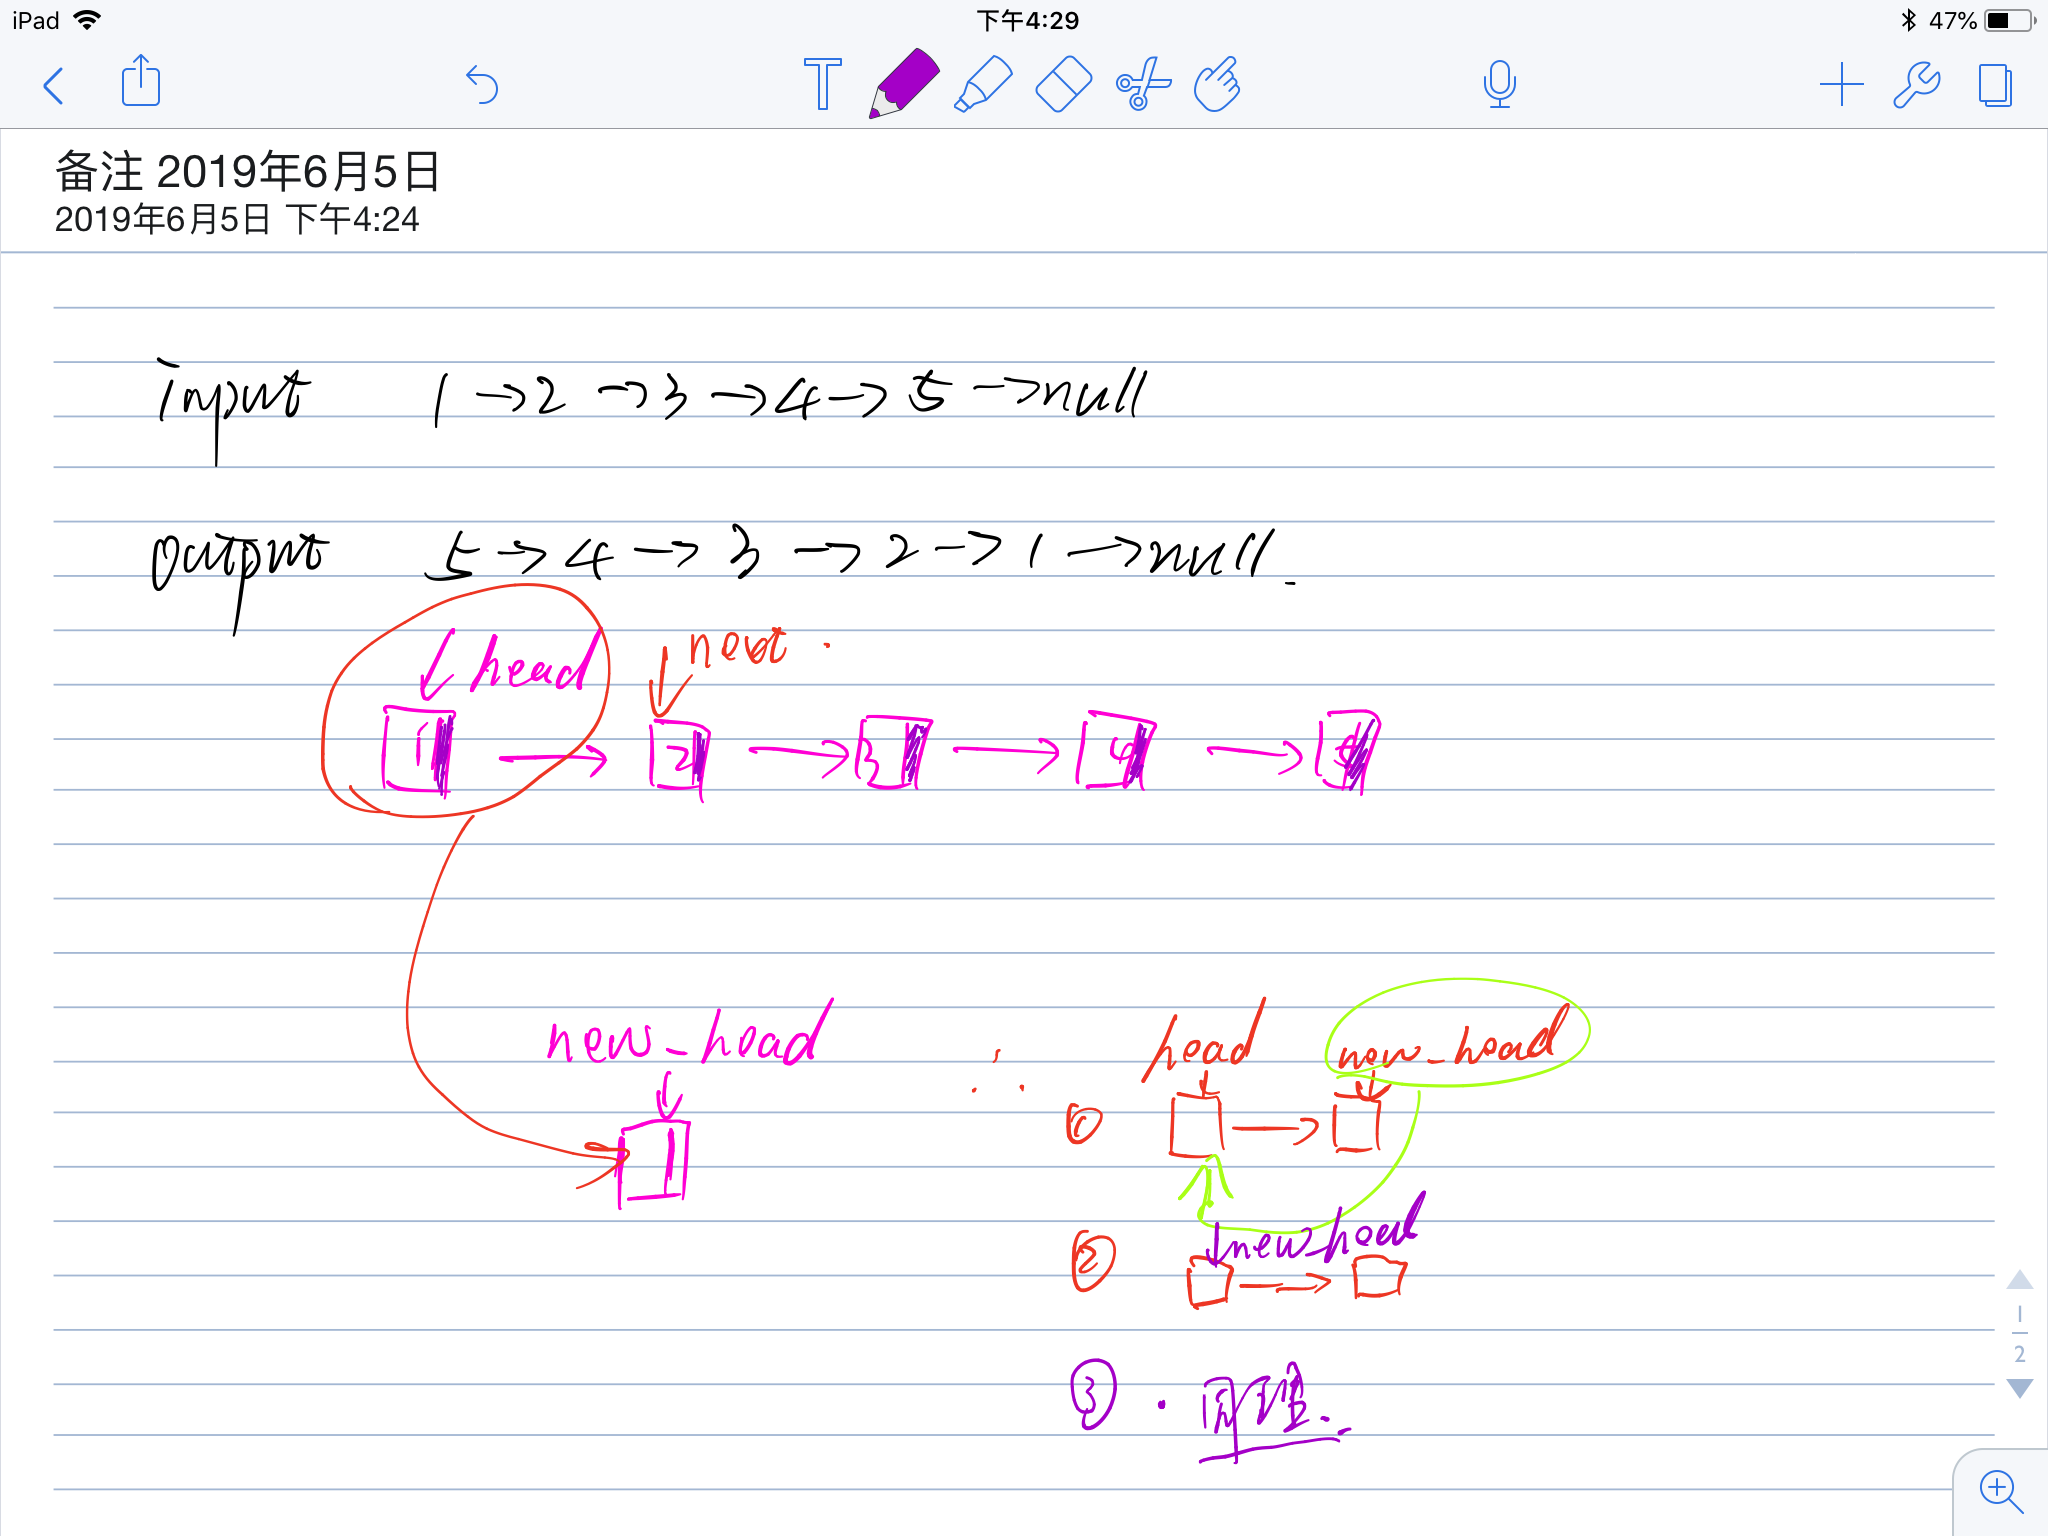 iPad 下午4:29 47%
T
备注 2019年6月5日
2019年6月5日 下午4:24
input 1→2→3→4→5→null
output 5→4→3→2→1→null.
head next.
1→2→3→4→5
new_head ∴ head new_head
① →
② new_head →
③ · 同理.
1
2